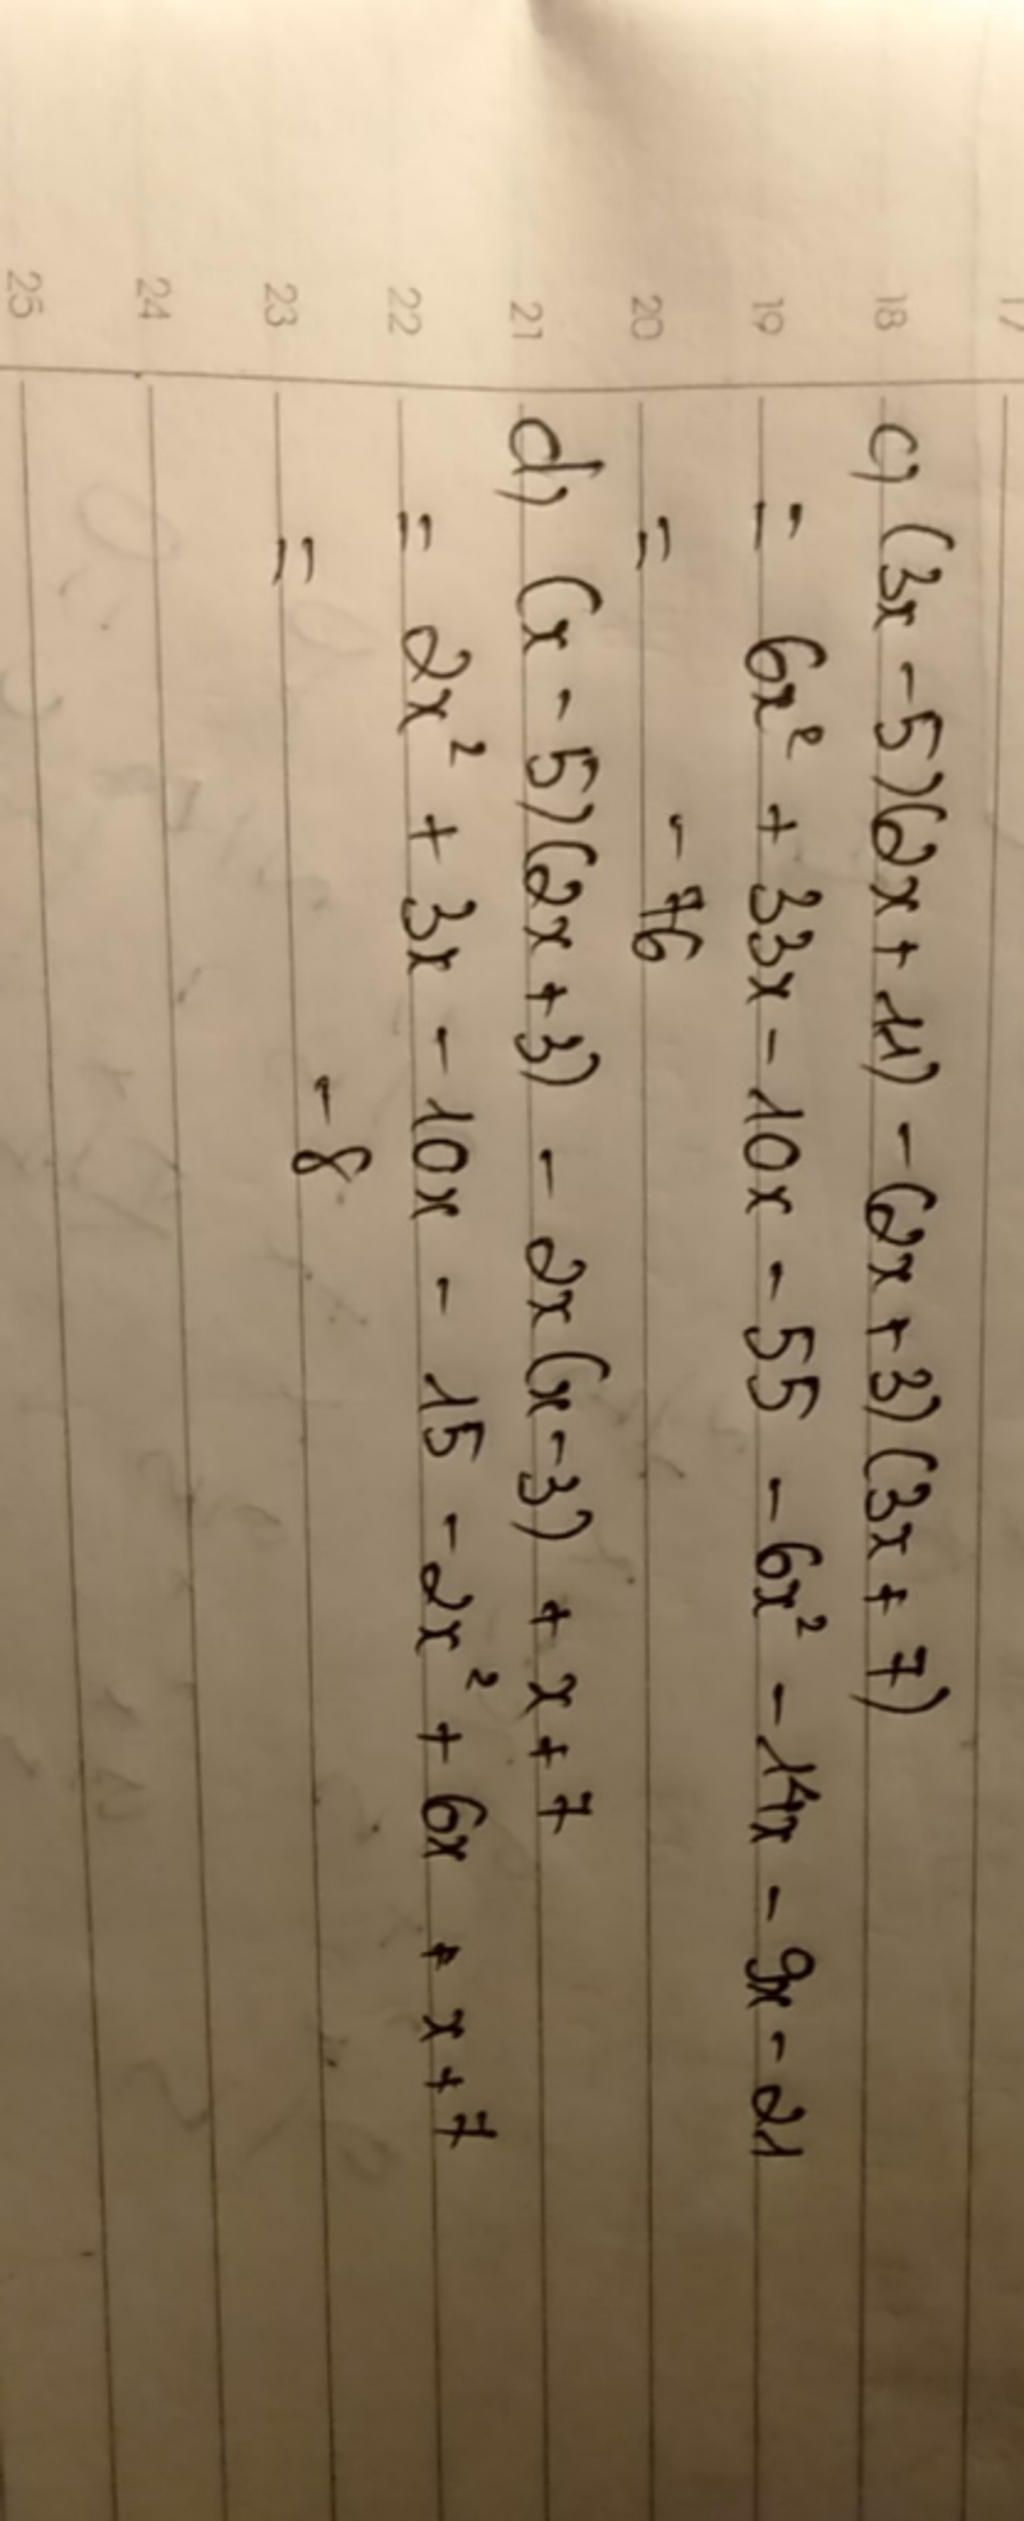 17
18 c) (3x - 5)(2x + 11) - (2x + 3)(3x + 7)
19 = 6x² + 33x - 10x - 55 - 6x² - 14x - 9x - 21
20 = - 76
21 d) (x - 5)(2x + 3) - 2x(x - 3) + x + 7
22 = 2x² + 3x - 10x - 15 - 2x² + 6x + x + 7
23 = - 8
24
25